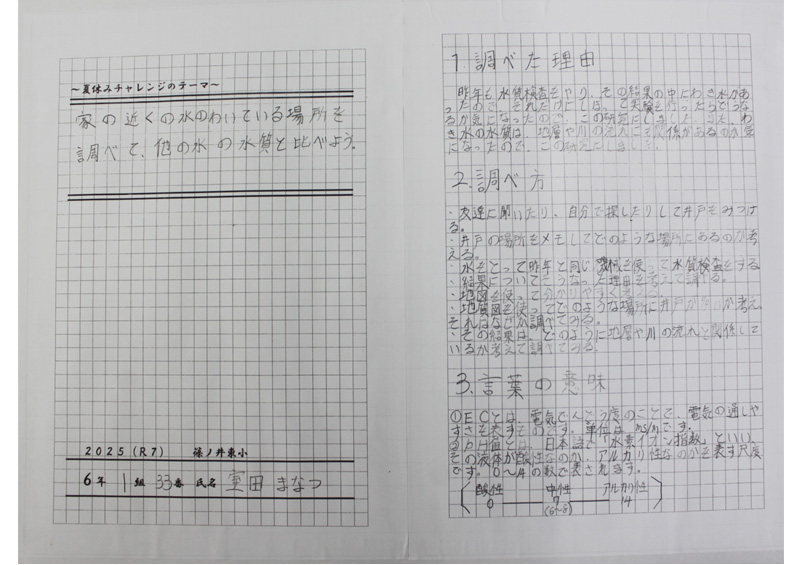 ～夏休みチャレンジのテーマ～
家の近くの水のわいている場所を
調べて、他の水の水質と比べよう。
2025(R7) 篠ノ井東小
6年 1組 33番 氏名 室田 まなつ
1.調べた理由
昨年も水質検査をやり、その結果の中にわき水があ
ったので、それだけにしぼって実験を行ったらどうな
るか気になったので、この研究にしました。また、わ
き水の水質は、地層や川の流れにも関係があるのか気
になったので、この研究にしました。
2.調べ方
・友達に聞いたり、自分で探したりして井戸をみつけ
る。
・井戸の場所をメモしてどのような場所にあるのか考
える。
・水をとって昨年と同じ機械を使って水質検査をする
・結果についてこうなった理由を考えて調べる。
・地図を使って分かりやすく
・地質図を使ってどのような場所に井戸が多いか考え、
それはなぜか調べてみる。
・その結果は、どのように地層や川の流れと関係して
いるか考えて調べてみる。
3.言葉の意味
①ECとは、電気でんどう度のことで、電気の通しや
すさを表すものです。単位は、mS/mです。
②PH値とは、日本語で「水素イオン指数」といい、
その液体が酸性なのか、アルカリ性なのかを表す尺度
です。0～14の数で表されます。
酸性 中性 アルカリ性
0 7 14
(6~8)